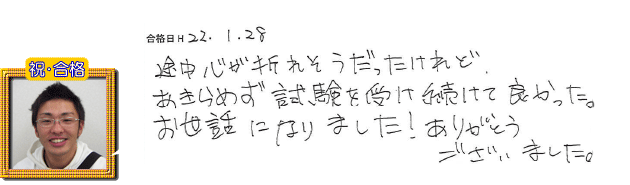 合格日 H 22. 1. 28
祝・合格
途中心が折れそうだったけれど、
あきらめず試験を受け続けて良かった。
お世話になりました！ありがとう
ございました。